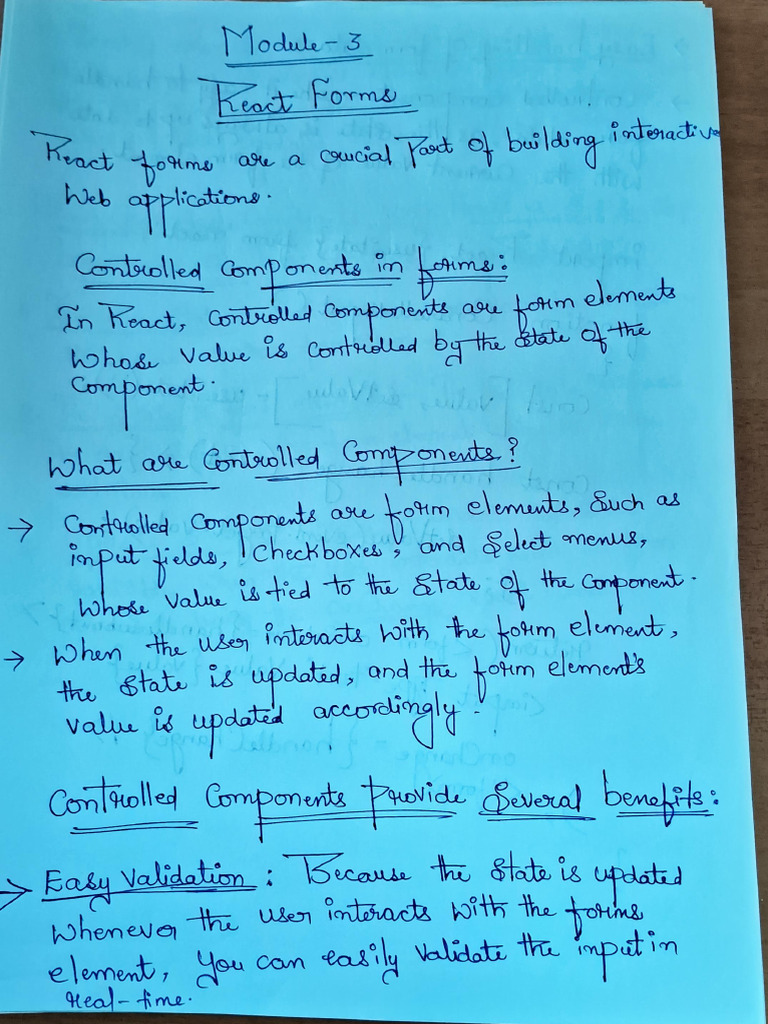 Module-3
React Forms
React forms are a crucial Part of building interactive
Web applications.
Controlled Components in forms:
In React, Controlled Components are form elements
Whose Value is Controlled by the State of the
Component.
What are Controlled Components?
→ Controlled Components are form elements, Such as
input fields, Checkboxes, and Select menus,
Whose Value is tied to the State of the Component.
→ When the user interacts with the form element,
the State is updated, and the form element's
Value is updated accordingly.
Controlled Components Provide Several benefits:
→ Easy Validation: Because the State is updated
Whenever the user interacts with the forms
element, You can easily Validate the input in
real-time.